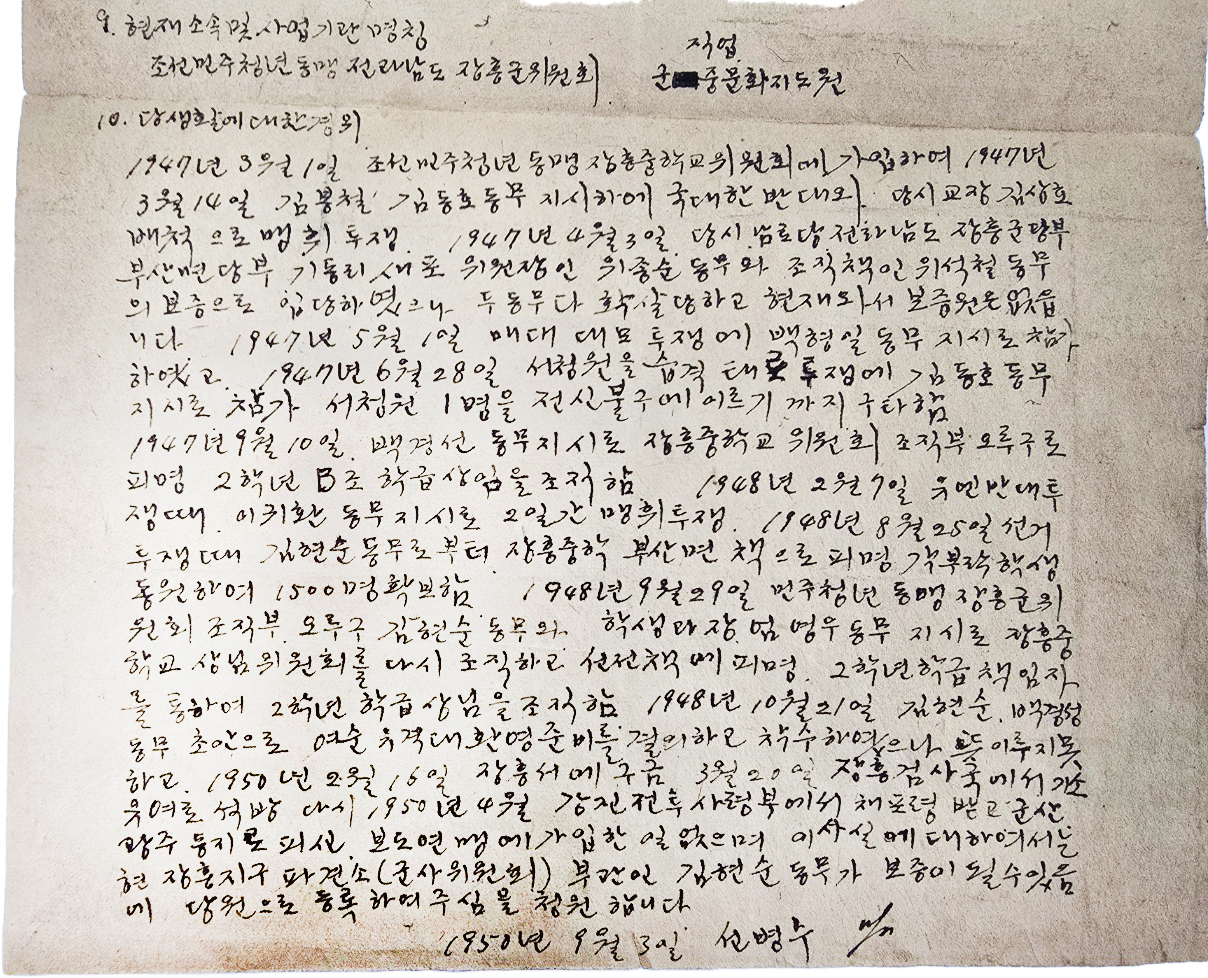 9. 현재 소속 및 사업기관 명칭
직업
조선민주청년동맹 전라남도 장흥군위원회 군중문화지도원
10. 당생활에 대한 경위
1947년 3월 1일 조선민주청년동맹 장흥중학교위원회에 가입하여 1947년
3월 14일 김봉철 김동호동무 지시하에 국대한 반대와 당시 교장 김상호
배척으로 맹휘 투쟁. 1947년 4월 3일 당시 남로당 전라남도 장흥군당부
부산면당부 기동리 세포 위원장인 위종순 동무와 조직책인 위석철 동무
의 보증으로 입당하였으나 두 동무다 학살당하고 현재와서 보증원은 없읍
니다 1947년 5월 1일 메대 대모 투쟁에 백형일 동무 지시로 참가
하였고. 1947년 6월 28일 서청원을 습격 대모 투쟁에 김동호 동무
지시로 참가 서청원 1명을 전신불구에 이르기까지 구타함
1947년 9월 10일. 백경선 동무지시로 장흥중학교 위원회 조직부 오루구로
피명 2학년 B조 학급상임을 조직함 1948년 2월 7일 유엔반대투
쟁때 이귀환 동무지시로 2일간 맹휘투쟁. 1948년 8월 25일 선거
투쟁때 김현순동무로부터 장흥중학 부산면 책으로 피명 각부락학생
동원하여 1500명확보함 1948년 9월 29일 민주청년동맹 장흥군위
원회 조직부 오루구 김현순 동무와 학생과장 임명우 동무 지시로 장흥중
학교 상님위원회를 다시 조직하고 선전책에 피명. 2학년학급책임자
를 통하여 2학년 학급상님을 조직함 1948년 10월 21일 김현순. 백경성
동무 초안으로 여순 유격대환영준비를 결의하고 착수하였으나 뜻 이루지못
하고. 1950년 2월 16일 장흥서에 구금 3월 20일 장흥검사국에서 기소
유여로 석방 다시 1950년 4월 강진전투사령부에서 체포령 받고 군산
광주 등지로 피신 보도연맹에 가입한 일 없으며 이사실에 대하여서는
현 장흥지구 파견소(군사위원회) 부관인 김현순 동무가 보증이 될수있음
에 당원으로 등록하여주심을 청원합니다
1950년 9월 3일 선병수